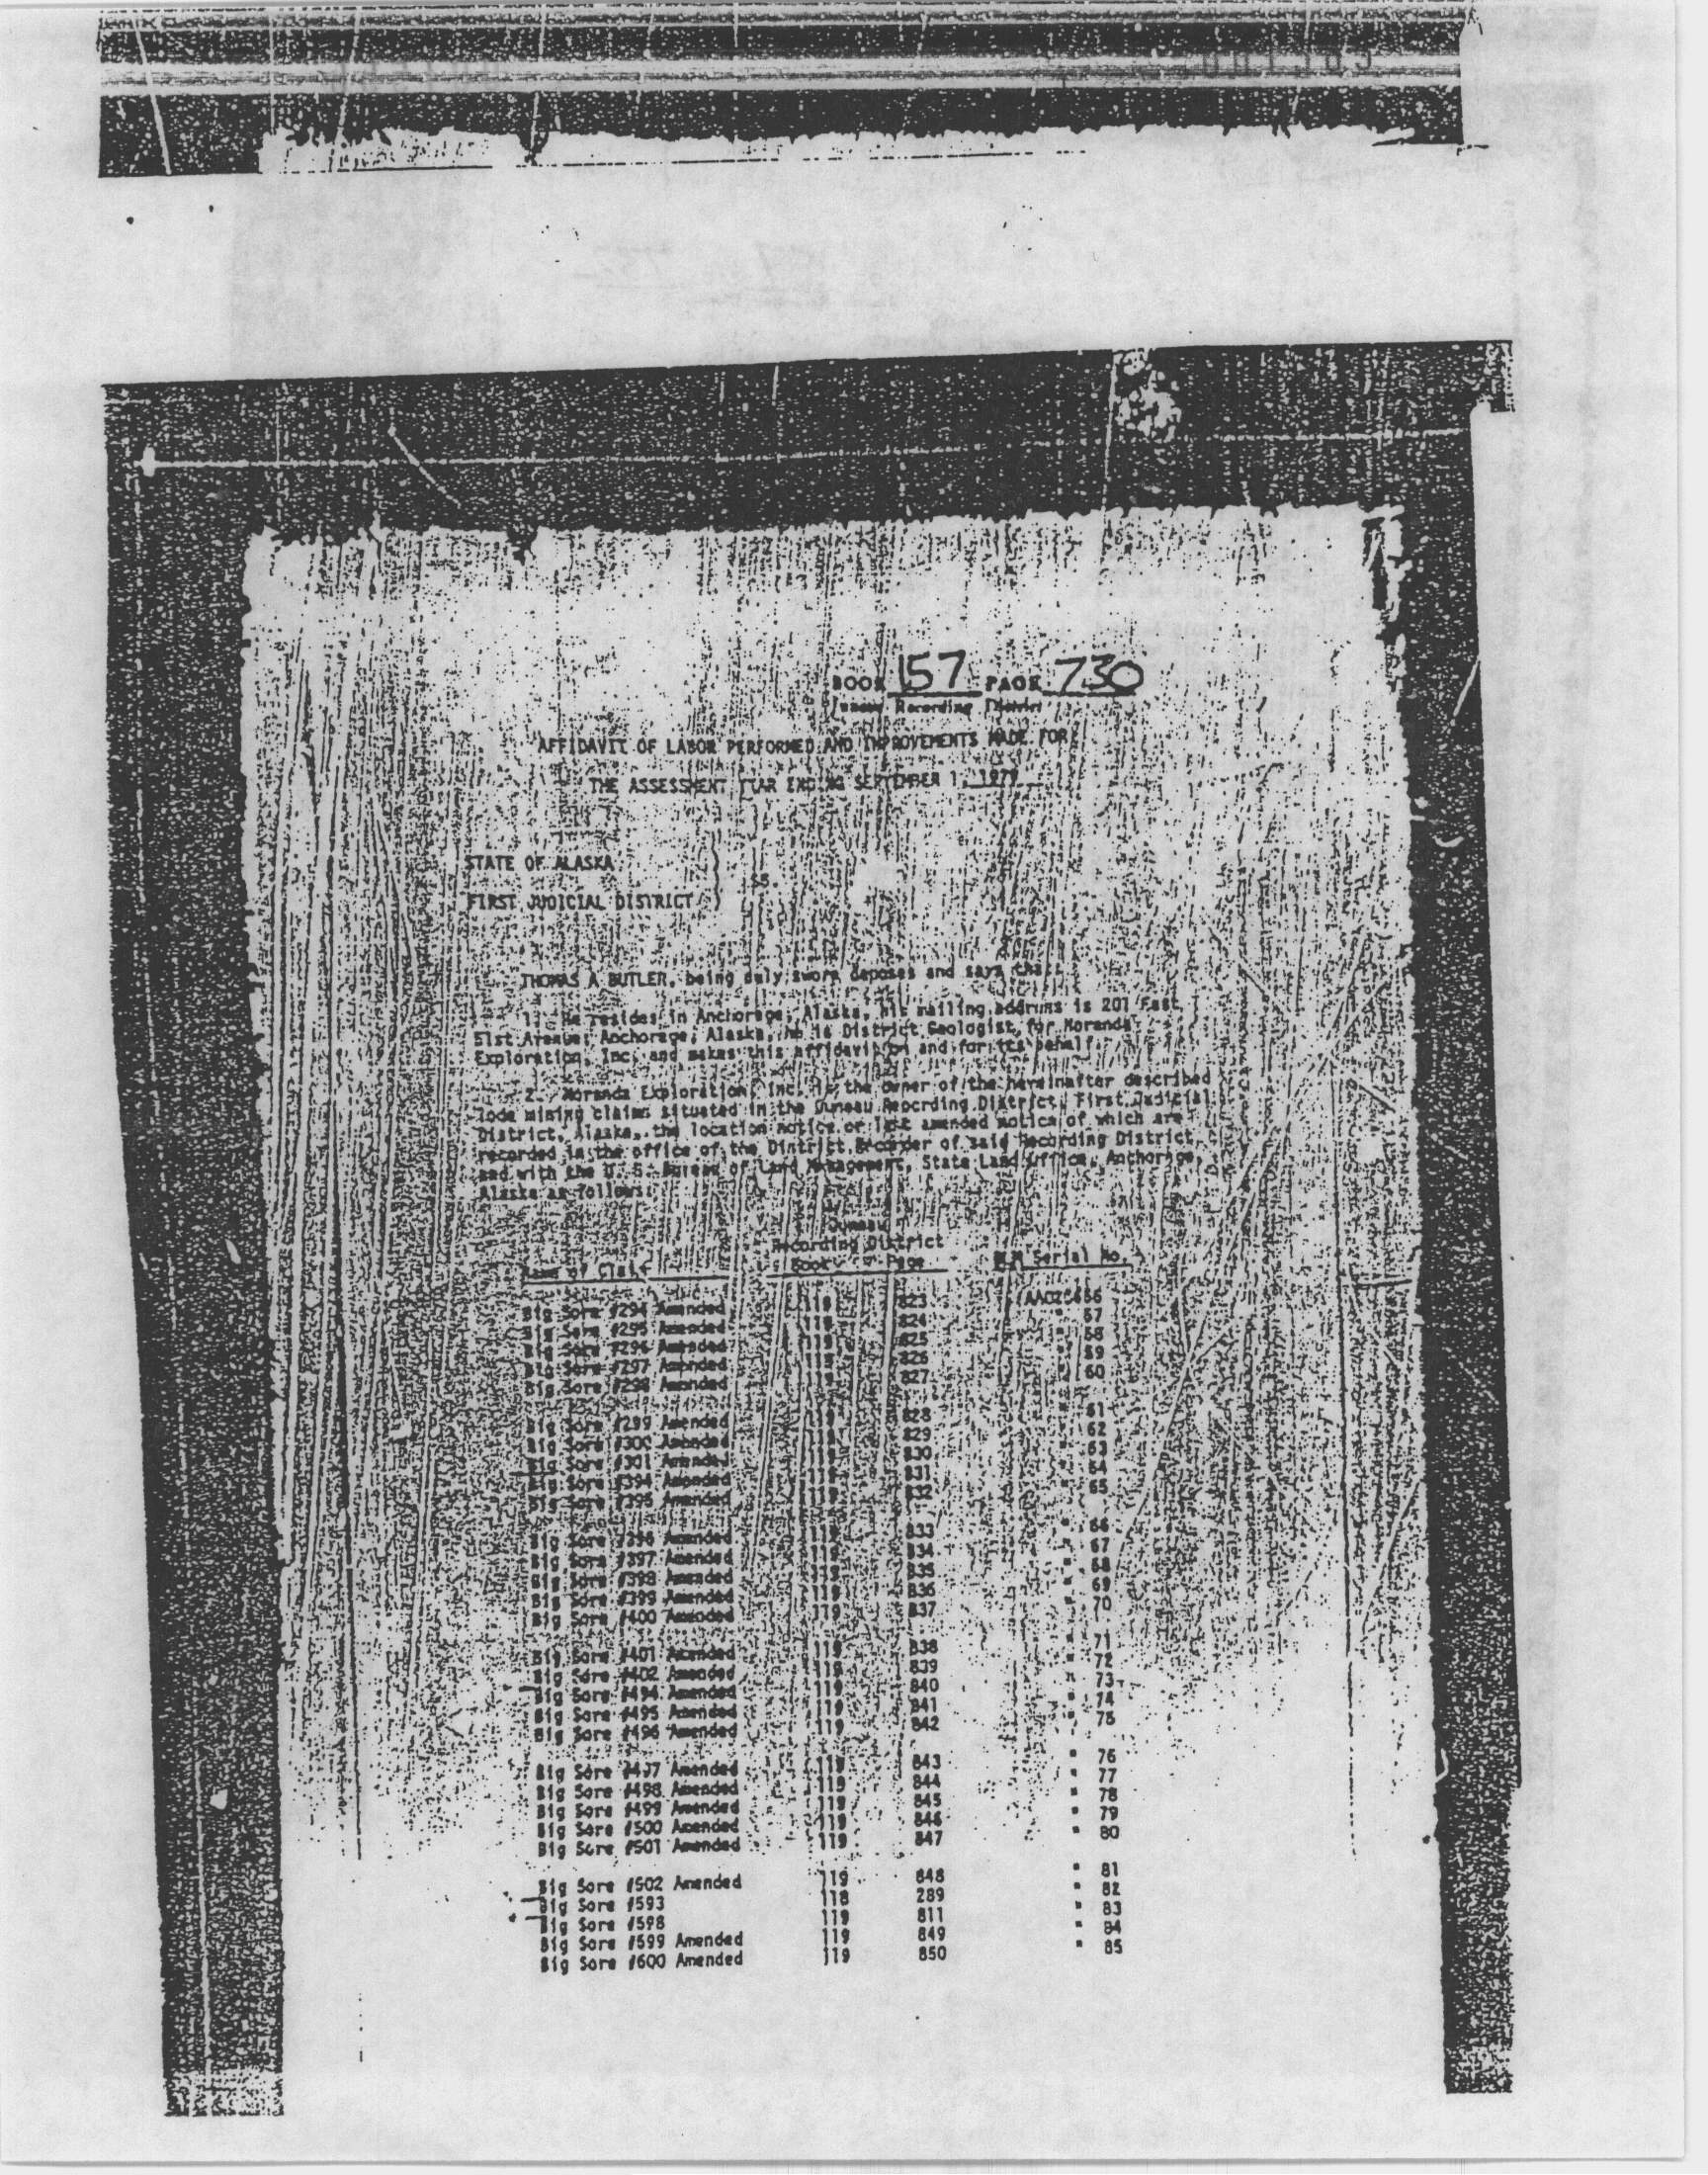 BOOK 157 PAGE 730
Juneau Recording District
AFFIDAVIT OF LABOR PERFORMED AND IMPROVEMENTS MADE FOR
THE ASSESSMENT YEAR ENDING SEPTEMBER 1, 1979
STATE OF ALASKA )
) ss.
FIRST JUDICIAL DISTRICT )
THOMAS A BUTLER, being duly sworn deposes and says that:
1. He resides in Anchorage, Alaska, his mailing address is 201 East
51st Avenue, Anchorage, Alaska, he is District Geologist for Noranda
Exploration, Inc. and makes this affidavit on and for its behalf.
2. Noranda Exploration, Inc. is the owner of the hereinafter described
lode mining claims situated in the Juneau Reocrding District, First Judicial
District, Alaska, the location notice or last amended notice of which are
recorded in the office of the District Recorder of said Recording District,
and with the U. S. Bureau of Land Management, State Land Office, Anchorage,
Alaska as follows:
Juneau
Recording District
Name of Claim Book Page BLM Serial No.
Big Sore #294 Amended 119 823 AA025656
Big Sore #295 Amended 119 824 " 57
Big Sore #296 Amended 119 825 " 58
Big Sore #297 Amended 119 826 " 59
Big Sore #298 Amended 119 827 " 60
Big Sore #299 Amended 119 828 " 61
Big Sore #300 Amended 119 829 " 62
Big Sore #301 Amended 119 830 " 63
Big Sore #394 Amended 119 831 " 64
Big Sore #395 Amended 119 832 " 65
Big Sore #396 Amended 119 833 " 66
Big Sore #397 Amended 119 834 " 67
Big Sore #398 Amended 119 835 " 68
Big Sore #399 Amended 119 836 " 69
Big Sore #400 Amended 119 837 " 70
Big Sore #401 Amended 119 838 " 71
Big Sore #402 Amended 119 839 " 72
Big Sore #494 Amended 119 840 " 73
Big Sore #495 Amended 119 841 " 74
Big Sore #496 Amended 119 842 " 75
Big Sore #497 Amended 119 843 " 76
Big Sore #498 Amended 119 844 " 77
Big Sore #499 Amended 119 845 " 78
Big Sore #500 Amended 119 846 " 79
Big Sore #501 Amended 119 847 " 80
Big Sore #502 Amended 119 848 " 81
Big Sore #593 118 289 " 82
Big Sore #598 119 811 " 83
Big Sore #599 Amended 119 849 " 84
Big Sore #600 Amended 119 850 " 85